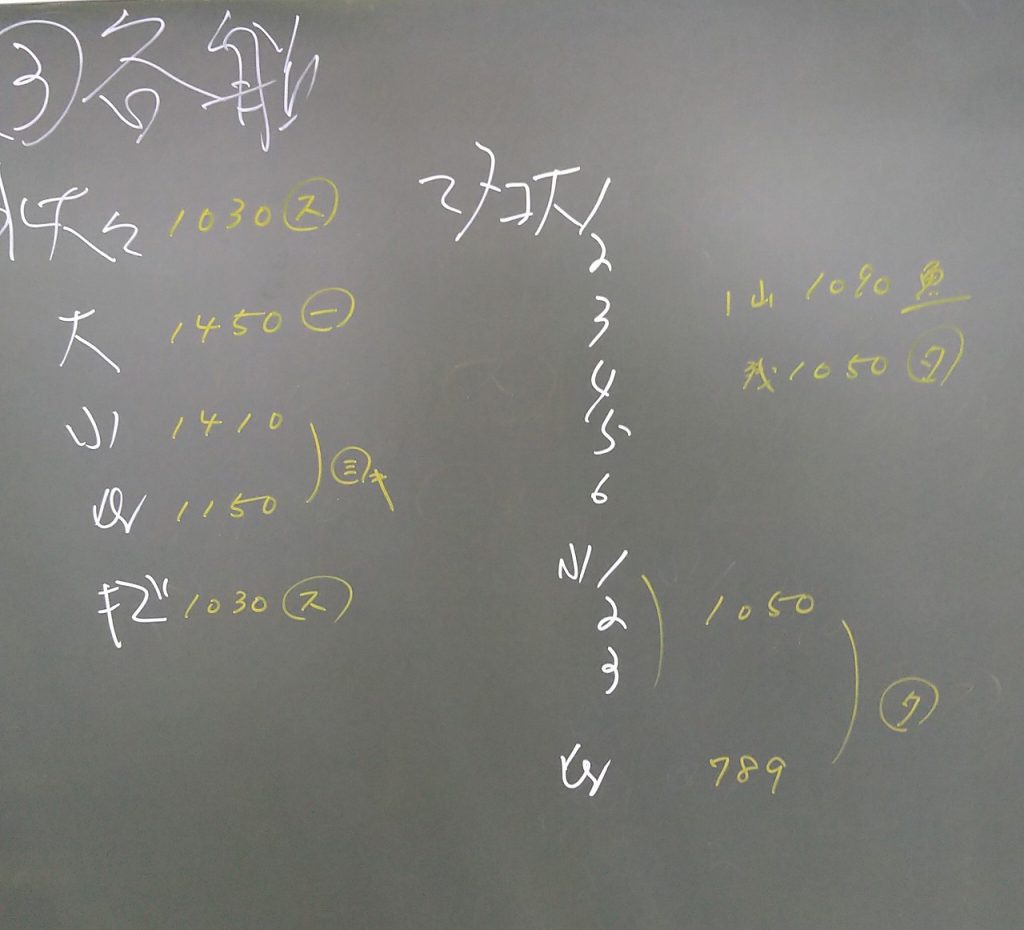 ③各船
大々 1030 ス
大 1450 一
小 1410
三
1150
キズ 1030 ス
マダコ大 1
2
3
4
5
6
1山 1090 魚
残 1050 ク
小 1
2
3
1050
ク
789